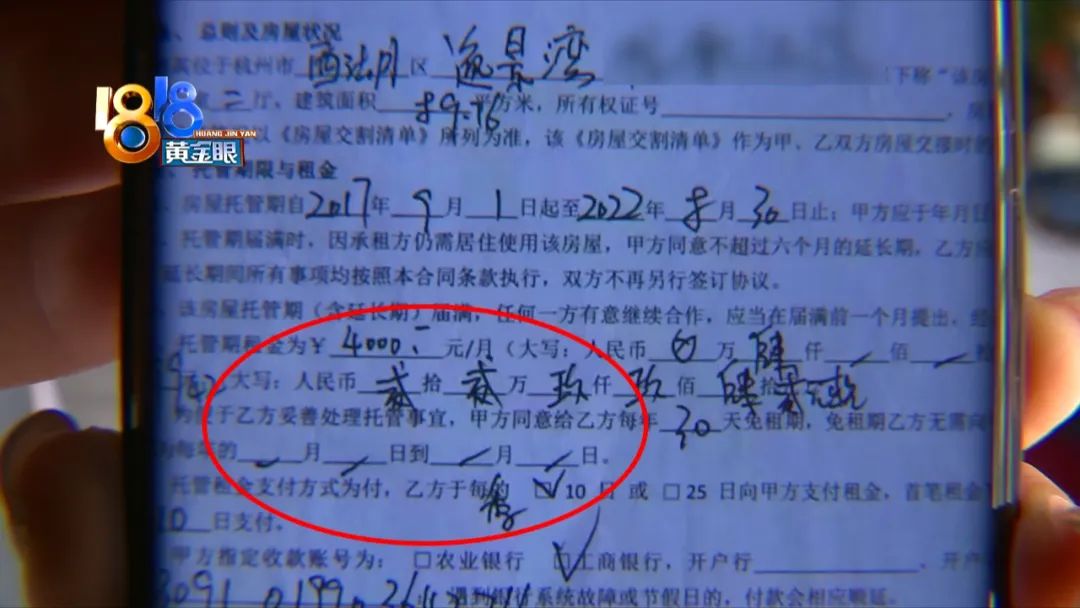 、总则及房屋状况
位于杭州市 西湖 区 逸景湾 （下称“该房
二 厅、建筑面积 89.16 平方米，所有权证号
以《房屋交割清单》所列为准，该《房屋交割清单》作为甲、乙双方房屋交接时的
1818
HUANG JIN YAN
黄金眼
、托管期限与租金
房屋托管期自2017年 9 月 1 日起至2022年 8 月 30 日止；甲方应于年月
托管期届满时，因承租方仍需居住使用该房屋，甲方同意不超过六个月的延长期，乙方
延长期间所有事项均按照本合同条款执行，双方不再另行签订协议。
该房屋托管期（含延长期）届满，任何一方有意继续合作，应当在届满前一个月提出，经
托管期租金为￥ 4000 元/月（大写：人民币 万 仟 佰
大写：人民币 贰 拾 贰 万 玖 仟 玖 佰 拾
为便于乙方妥善处理托管事宜，甲方同意给乙方每年 30 天免租期，免租期乙方无需向
为每年的 月 日到 月 日。
托管租金支付方式为付，乙方于每的 季 ☑10 日 或 □25 日向甲方支付租金，首笔租金
日支付。
甲方指定收款账号为：□农业银行 ☑工商银行，开户行 开户
：遇到银行系统故障或节假日的，付款会相应顺延。